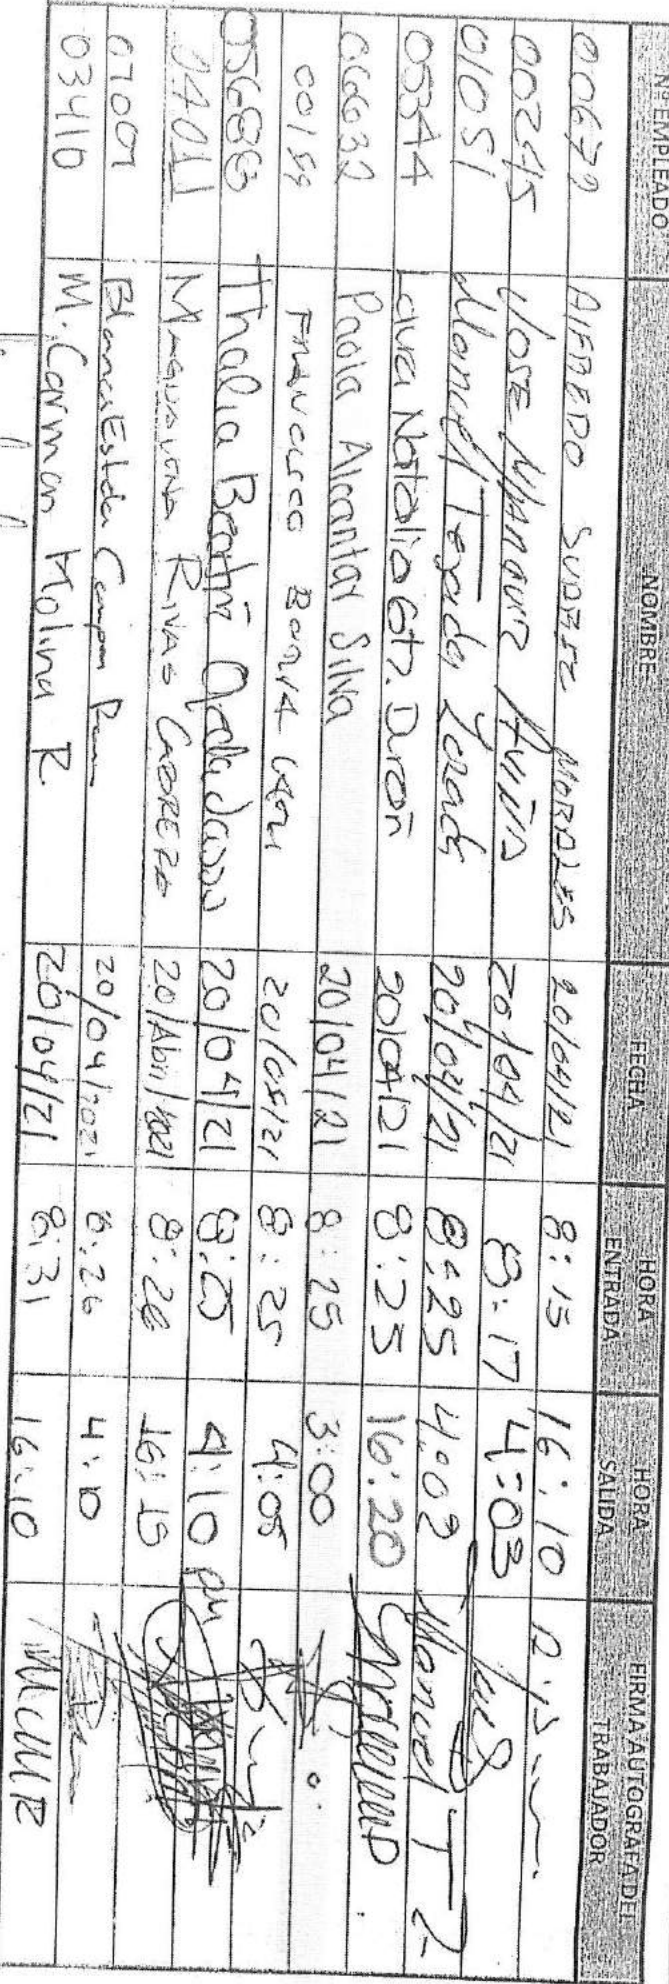 Nº EMPLEADO NOMBRE FECHA HORA ENTRADA HORA SALIDA FIRMA AUTOGRAFA DEL TRABAJADOR
00672 AlFREDO SUAREZ MORALES 20/04/21 8:15 16:10
00245 JOSE MANAUIZ 20/04/21 8:17 4:03
01051 Manuel Tejeda Lozada 20/04/21 8:25 4:02 Manuel T L
05344 Laura Natalia Gtz. Durón 20/04/21 8:25 16:20
06632 Paola Alcantar Silva 20/04/21 8:25 3:00
00159 FRANCISCO 20/04/21 8:25 4:05
05688 Thalia Beatriz 20/04/21 8:25 4:10 pm
04011 MAGDALENA RIVAS CABRERA 20/Abril/2021 8:26 16:15
07007 Blanca Estela Campos 20/04/2021 8:26 4:10
03416 M. Carmen Molina R. 20/04/21 8:31 16:10 MCMR